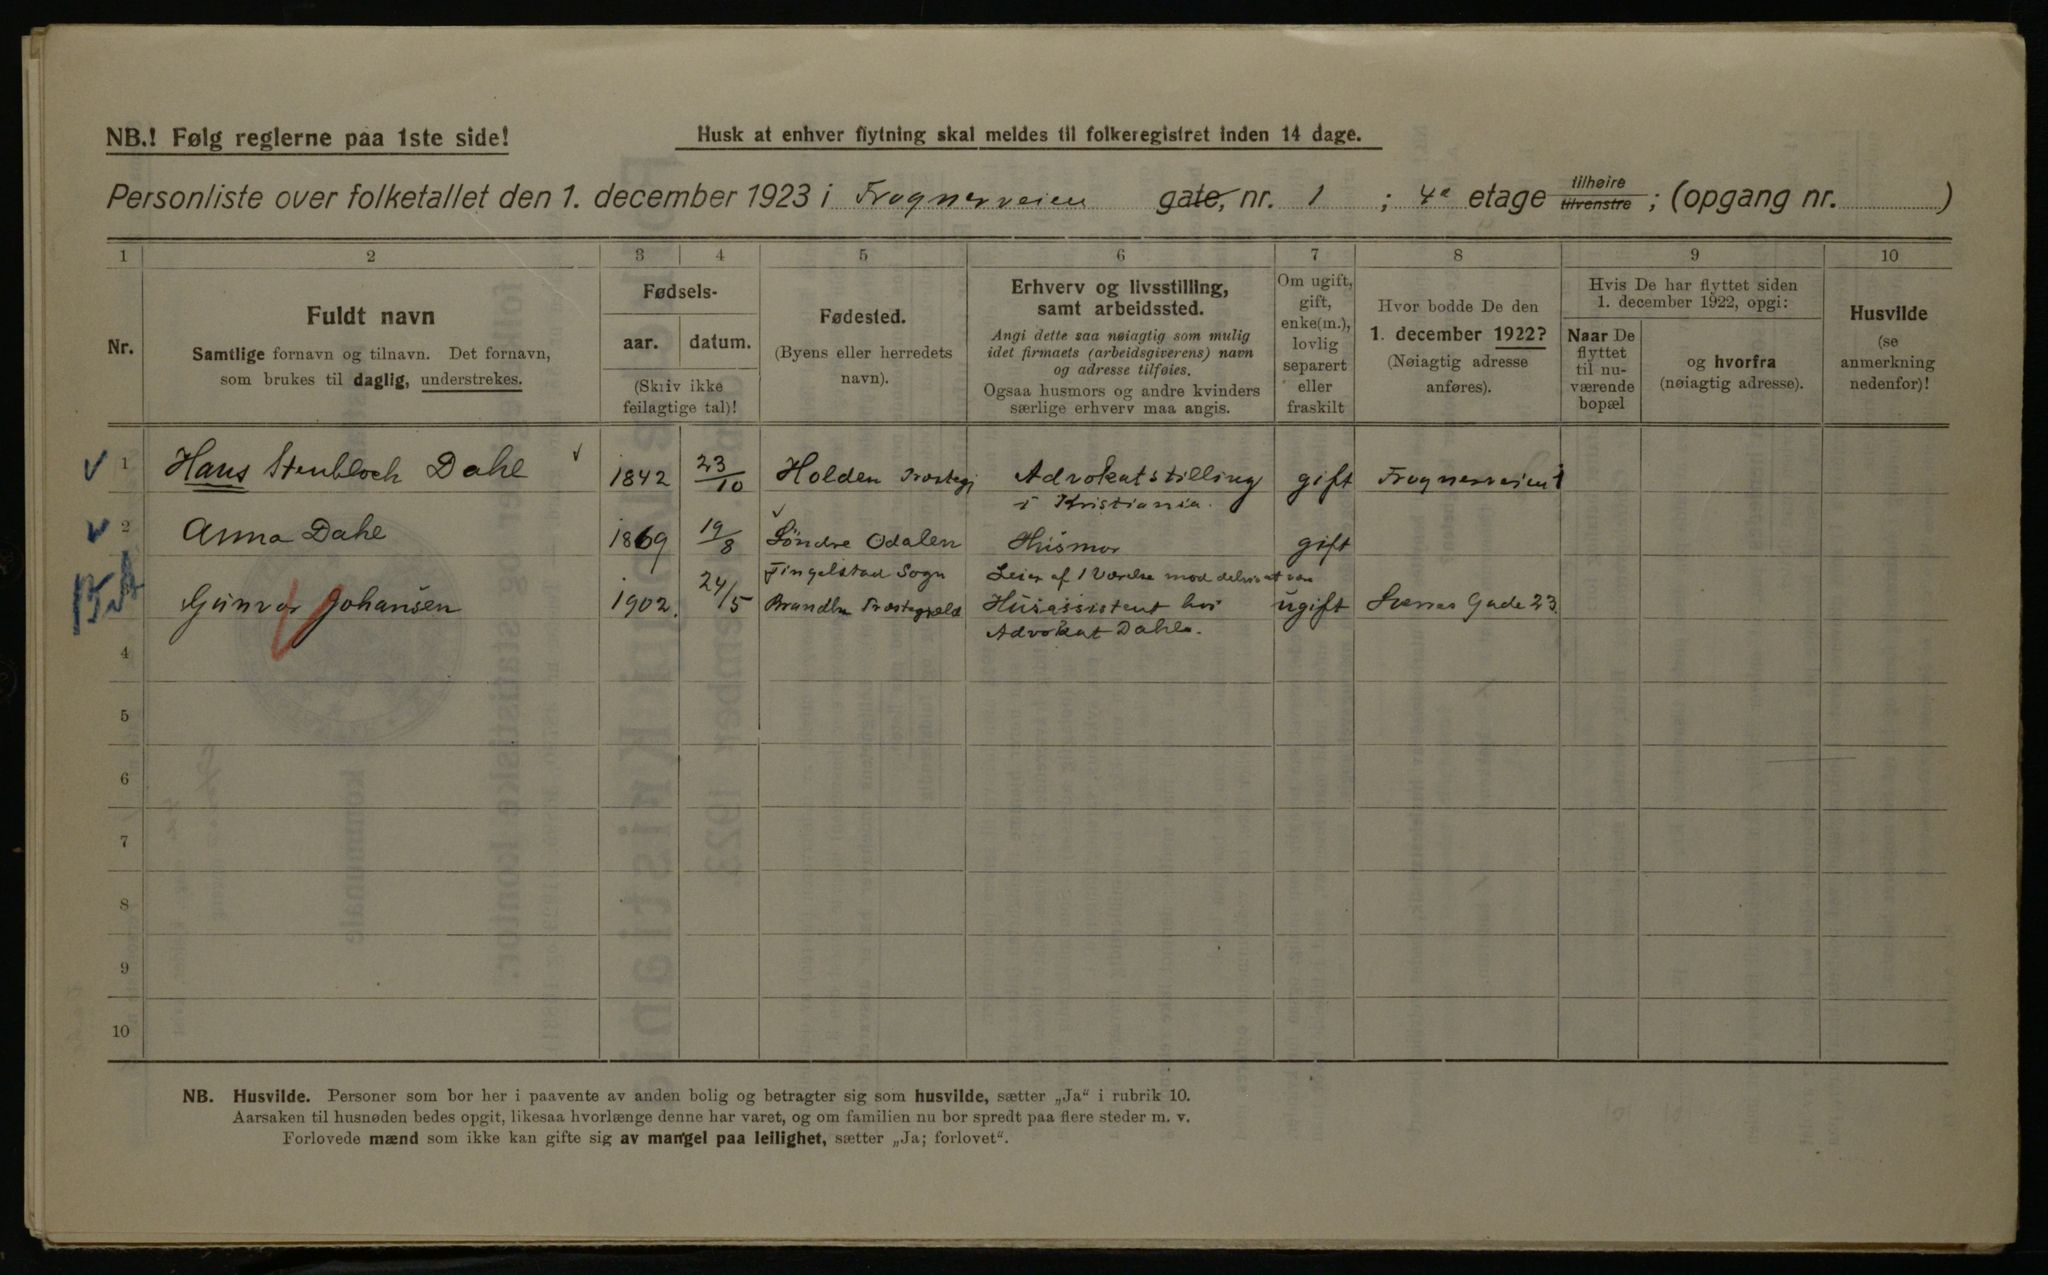 NB.! Følg reglerne paa 1ste side!
Husk at enhver flytning skal meldes til folkeregistret inden 14 dage.
Personliste over folketallet den 1. december 1923 i Frognerveien gate, nr. 1 ; 4e etage tilhøire tilvenstre ; (opgang nr. )
1 2 3 4 5 6 7 8 9 10
Nr.
Fuldt navn
Samtlige fornavn og tilnavn. Det fornavn,
som brukes til daglig, understrekes.
Fødsels-
aar. datum.
(Skriv ikke
feilagtige tal)!
Fødested.
(Byens eller herredets
navn).
Erhverv og livsstilling,
samt arbeidssted.
Angi dette saa nøiagtig som mulig
idet firmaets (arbeidsgiverens) navn
og adresse tilføies.
Ogsaa husmors og andre kvinders
særlige erhverv maa angis.
Om ugift,
gift,
enke(m.),
lovlig
separert
eller
fraskilt
Hvor bodde De den
1. december 1922?
(Nøiagtig adresse
anføres).
Hvis De har flyttet siden
1. december 1922, opgi:
Naar De
flyttet
til nu-
værende
bopæl
og hvorfra
(nøiagtig adresse).
Husvilde
(se
anmerkning
nedenfor)!
1 Hans Stenbloch Dahl 1842 23/10 Holden Præstegj Advokatstilling gift Frognerveien 1
i Kristiania.
2 Anna Dahl 1869 19/8 Søndre Odalen Husmor gift
Tingelstad Sogn Leier af 1 Værelse mod
3 Gunvor Johansen 1902. 24/5 Brandbu Præstegjeld Husassistent hos ugift Sverres Gade 23.
Advokat Dahl.
4
5
6
7
8
9
10
NB. Husvilde. Personer som bor her i paavente av anden bolig og betragter sig som husvilde, sætter „Ja“ i rubrik 10.
Aarsaken til husnøden bedes opgit, likesaa hvorlænge denne har varet, og om familien nu bor spredt paa flere steder m. v.
Forlovede mænd som ikke kan gifte sig av mangel paa leilighet, sætter „Ja; forlovet“.